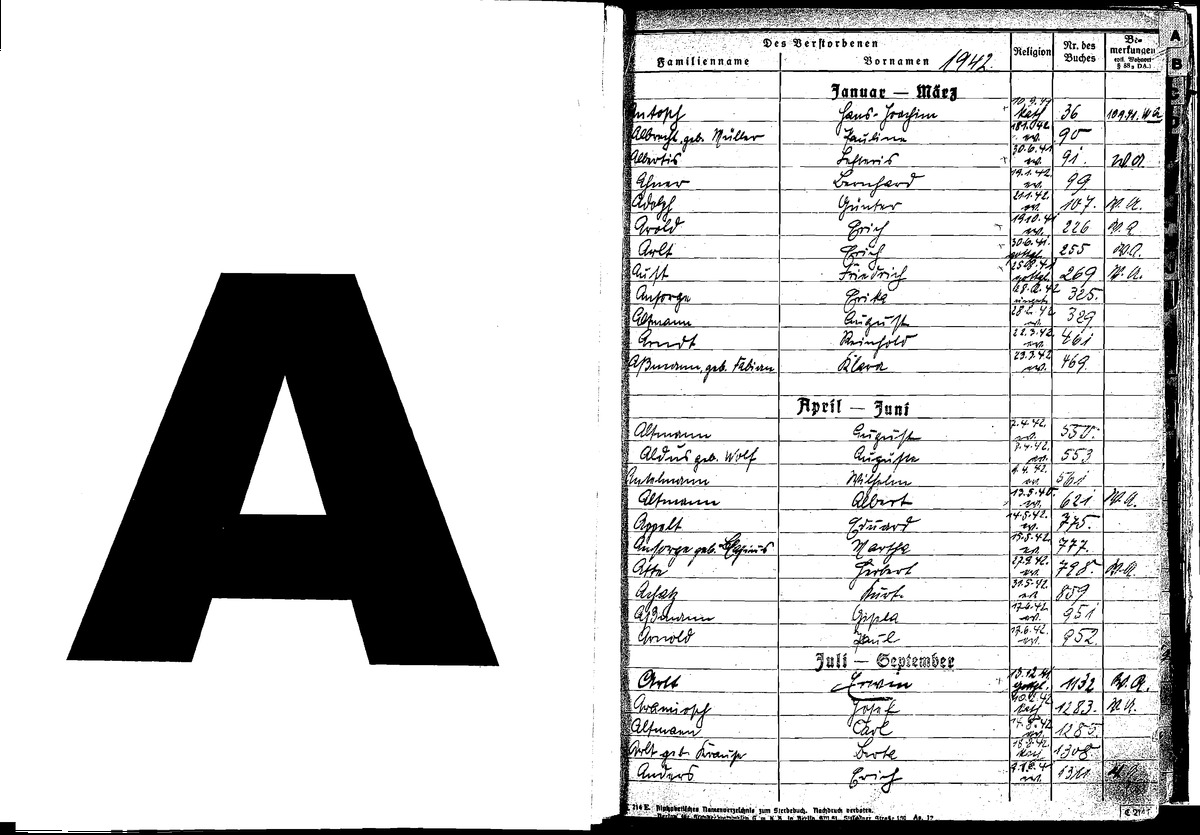 A
Des Verstorbenen
Familienname Vornamen 1942. Religion Nr. des Buches Bemerkungen evtl. Wohnort § 88 a DA.)
A
B
Januar — März
Antosch Hans-Joachim 10.9.41 kath 36 10.9.41. W.A.
Albrecht, geb. Müller Pauline 18.1.42 ev. 90
Albertis Lefteris 30.6.41 ev. 91. W.A.
Ahner Bernhard 19.1.42. ev. 99
Adolph Günter 21.1.42. ev. 107. W.A.
Arold Erich 19.10.41 ev. 226 W.A.
Arlt Erich 30.6.41. gottgl. 255 W.A.
Aust Friedrich gottgl. 269 W.A.
Ansorge Erika 325.
Altmann August ev. 389.
Arndt Reinhold 22.3.42 ev. 461
Aßmann, geb. Fabian Klara 23.3.42 ev. 469.
April — Juni
Altmann Auguste 2.4.42. ev. 550.
Aldus geb. Wolf Auguste ev. 553
Antelmann Wilhelm 4.4.42. ev. 561
Altmann Albert ev. 621 W.A.
Appelt Eduard 14.5.42. ev. 775.
Ansorge geb. Martha 15.5.42 ev. 777.
Atte Herbert ev. 798 W.A.
Achatz Kurt 31.5.42. ev. 859
Aßmann Gisela 17.6.42. ev. 951
Arnold Paul 17.6.42. ev. 952.
Juli — September
Arlt Erwin 18.12.41 gottgl. 1132 W.A.
Aramiosch Josef kath 1283. W.A.
Altmann Carl 14.8.42 ev. 1285.
Arlt geb. Krause Berta 18.8.42. kath 1308
Anders Erich ev. 1311
214 E. Alphabetisches Namenverzeichnis zum Sterbebuch. Nachdruck verboten.